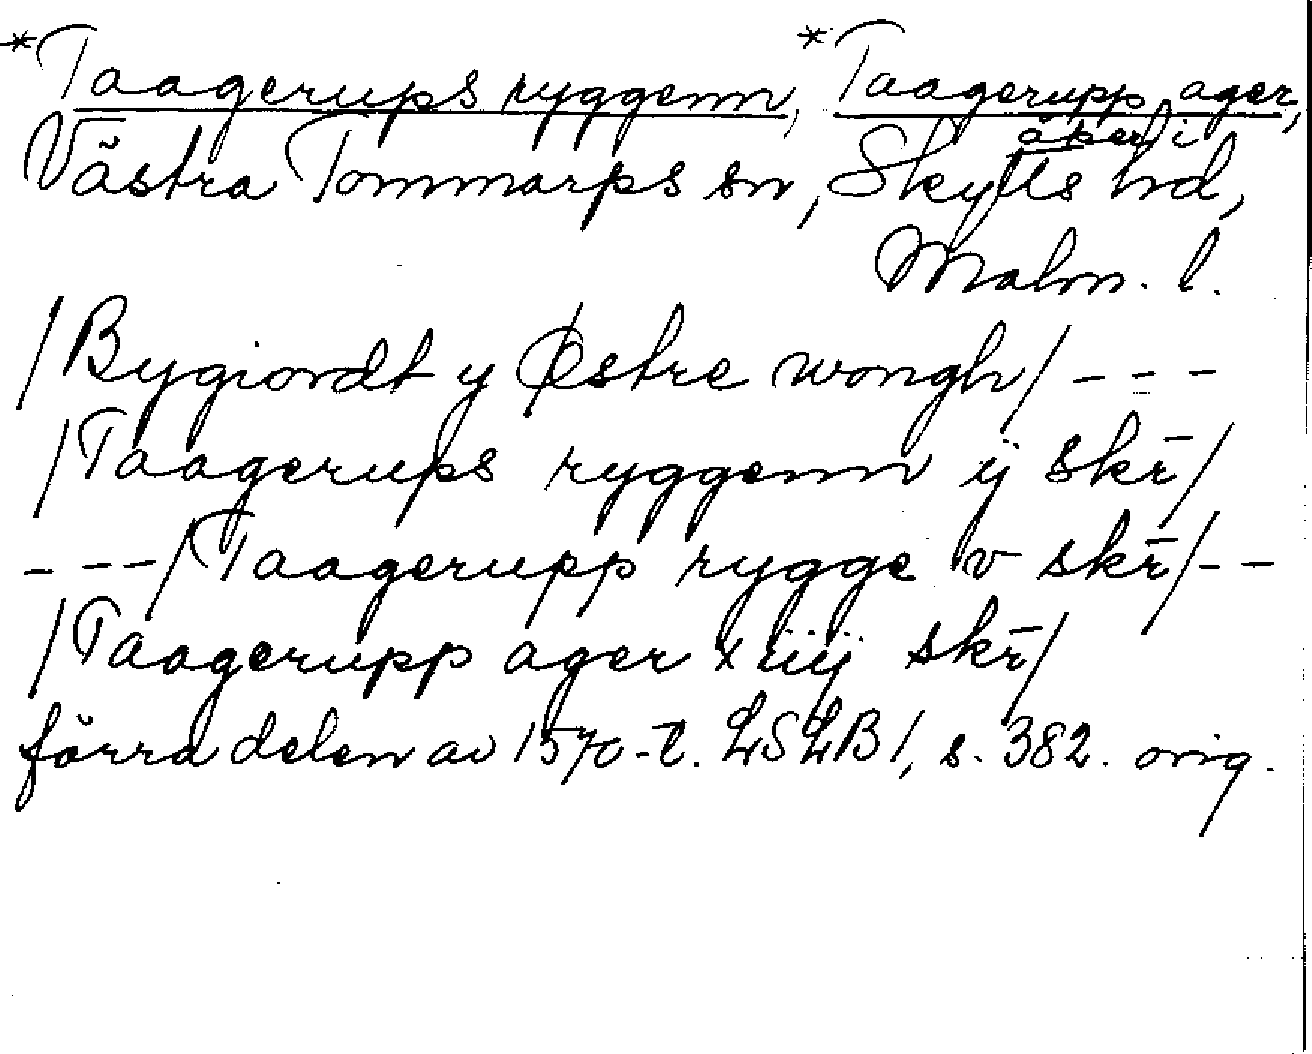 *Taagerups ryggenn, *Taagerupp ager,
åker i
Västra Tommarps sn, Skytts hd,
Malm. l.
/Bygiordt y Østre wongh/ - - -
/Taagerups ryggenn ÿ skr̄/
- - - /Taagerupp rygge v skr̄/ - -
/Taagerupp ager xiiij skr̄/
förra delen av 1570-t. LSLB 1, s. 382. orig.